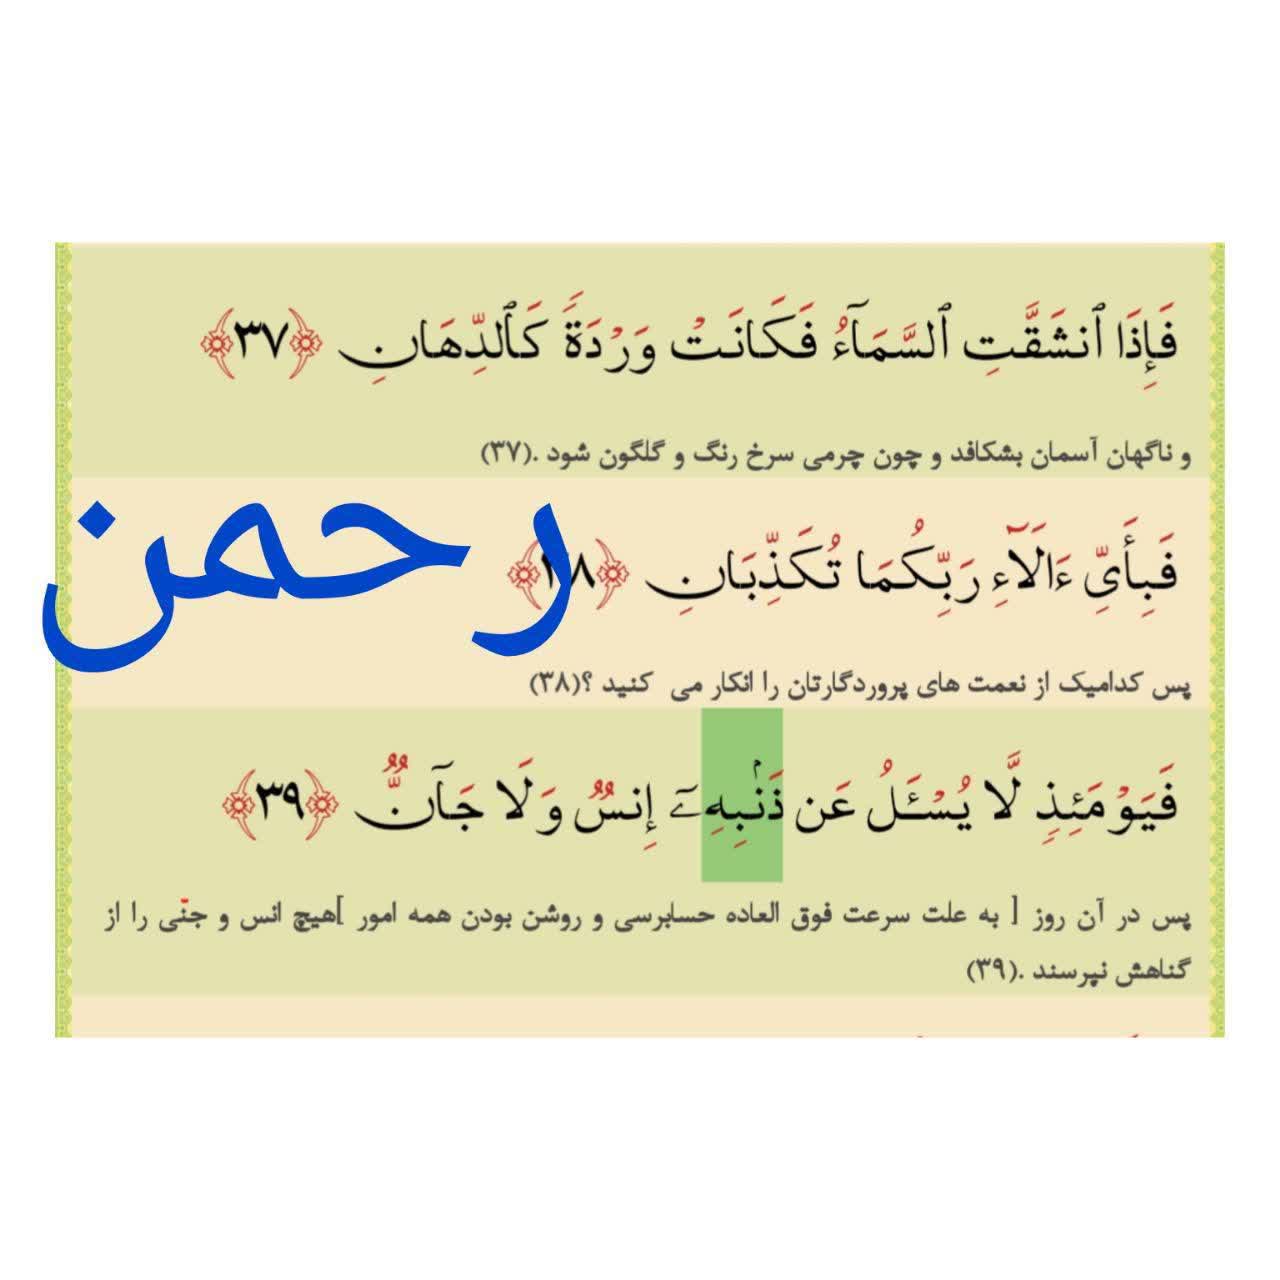 فَإِذَا ٱنشَقَّتِ ٱلسَّمَآءُ فَكَانَتْ وَرْدَةً كَٱلدِّهَانِ ﴿٣٧﴾
و ناگهان آسمان بشکافد و چون چرمی سرخ رنگ و گلگون شود .(٣٧)
فَبِأَىِّ ءَالَآءِ رَبِّكُمَا تُكَذِّبَانِ ﴿٣٨﴾
رحمن
پس کدامیک از نعمت های پروردگارتان را انکار می کنید ؟(٣٨)
فَيَوْمَئِذٍ لَّا يُسْـَٔلُ عَن ذَنۢبِهِۦٓ إِنسٌ وَلَا جَآنٌّ ﴿٣٩﴾
پس در آن روز [ به علت سرعت فوق العاده حسابرسی و روشن بودن همه امور ]هیچ انس و جنّی را از
گناهش نپرسند .(٣٩)